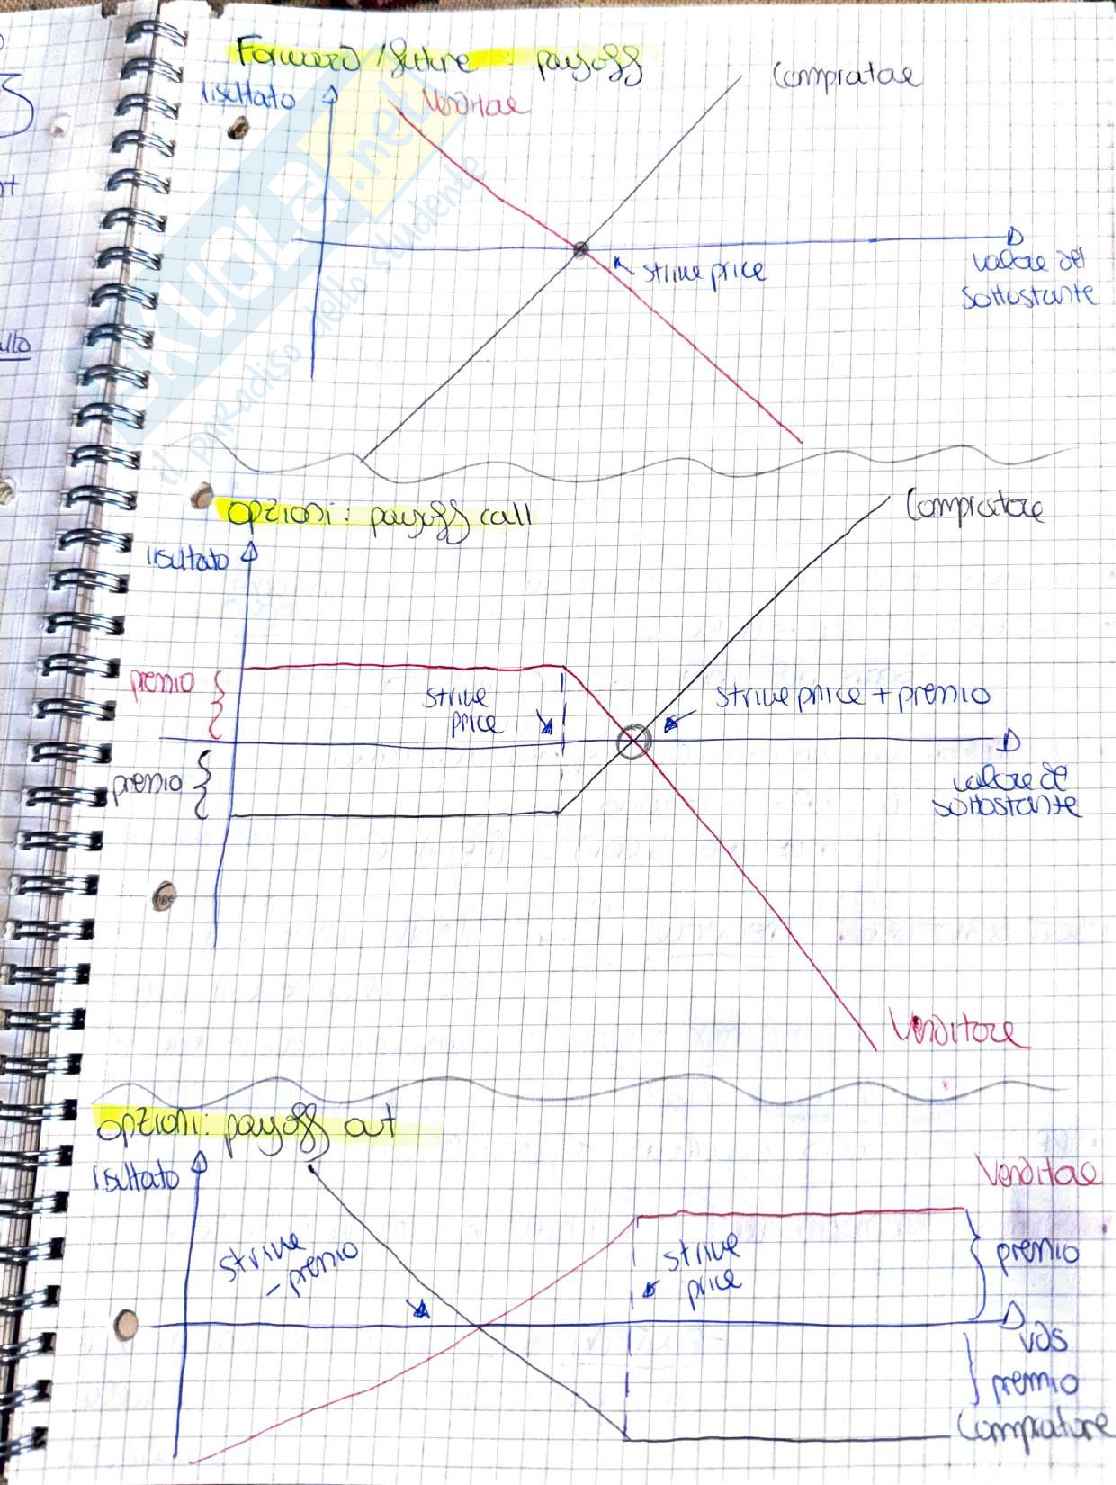 Forward / future : payoff
risultato
Venditore
Compratore
strike price
valore del
sottostante
SKUOLA.net
il paradiso dello studente
opzioni: payoff call
risultato
Compratore
premio
strike
price
strike price + premio
premio
valore del
sottostante
Venditore
opzioni: payoff out
risultato
Venditore
strike
- premio
strike
price
premio
vds
premio
Compratore